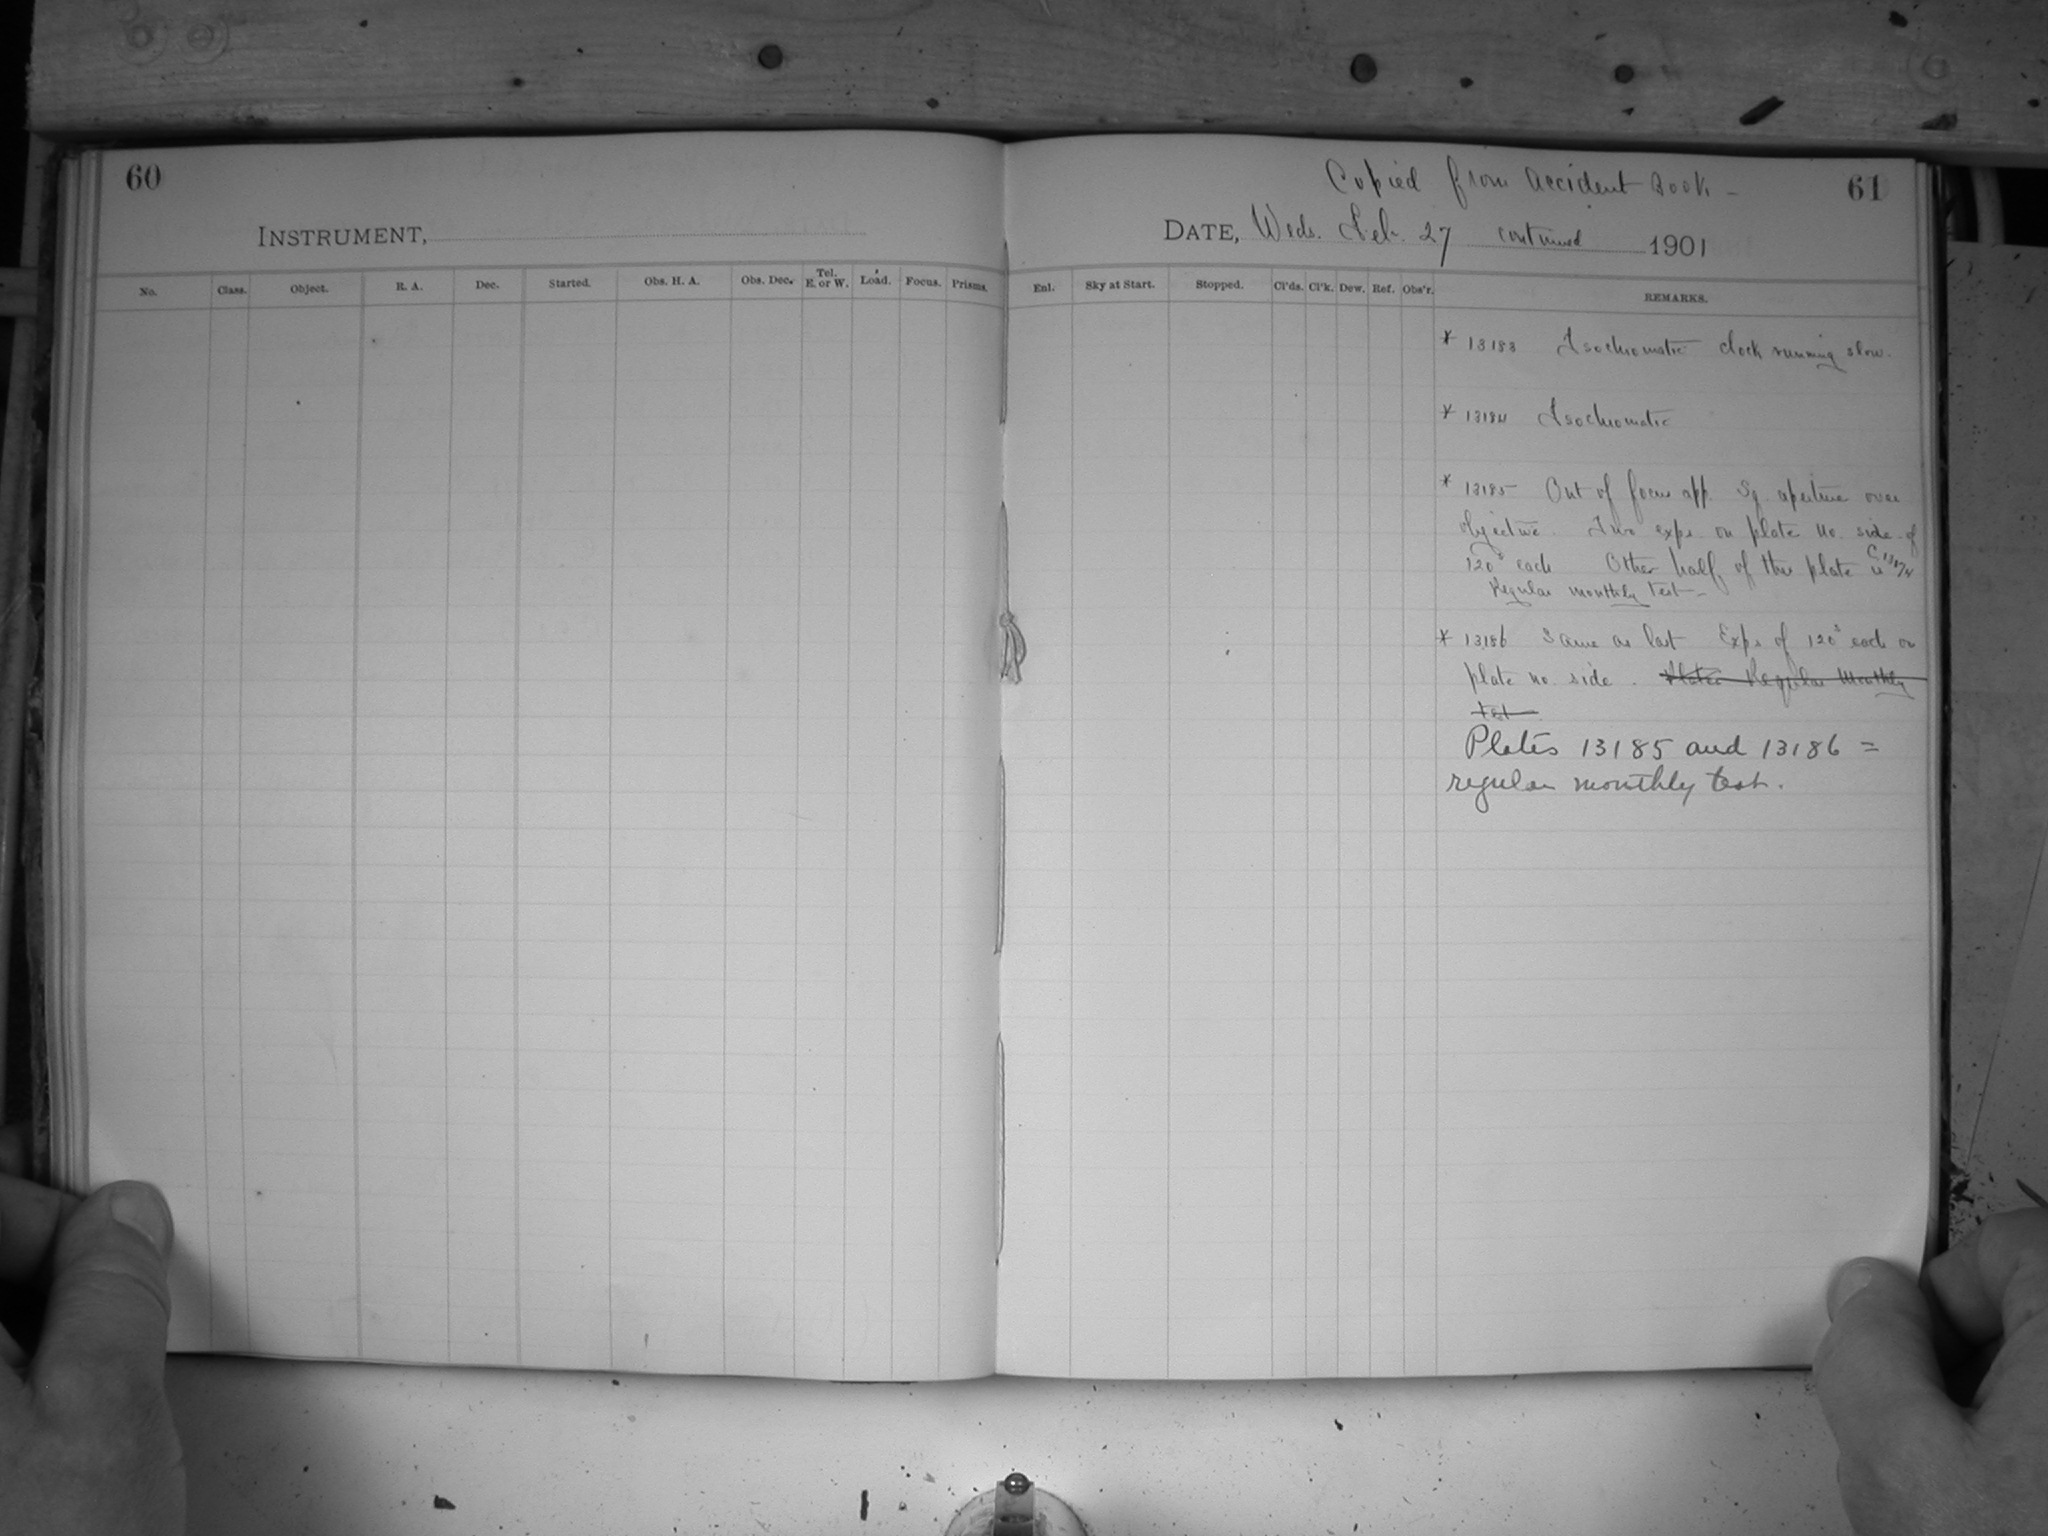 60
INSTRUMENT,
No. Class. Object. R. A. Dec. Started. Obs. H. A. Obs. Dec. Tel. E. or W. Load. Focus. Prisms.
Copied from accident Book -
61
DATE, Weds. Feb. 27 continued 1901
Enl. Sky at Start. Stopped. Cl'ds. Cl'k. Dew. Ref. Obs'r. REMARKS.
* 13183 Isochromatic clock running slow.
* 13184 Isochromatic
* 13185 Out of focus app. Sq. aperture over
objective. Two exps. on plate no. side of
120s each Other half of this plate is
Regular monthly Test -
* 13186 Same as last Exps of 120s each on
plate no. side. Plates Regular Monthly
test
Plates 13185 and 13186 =
regular monthly test.